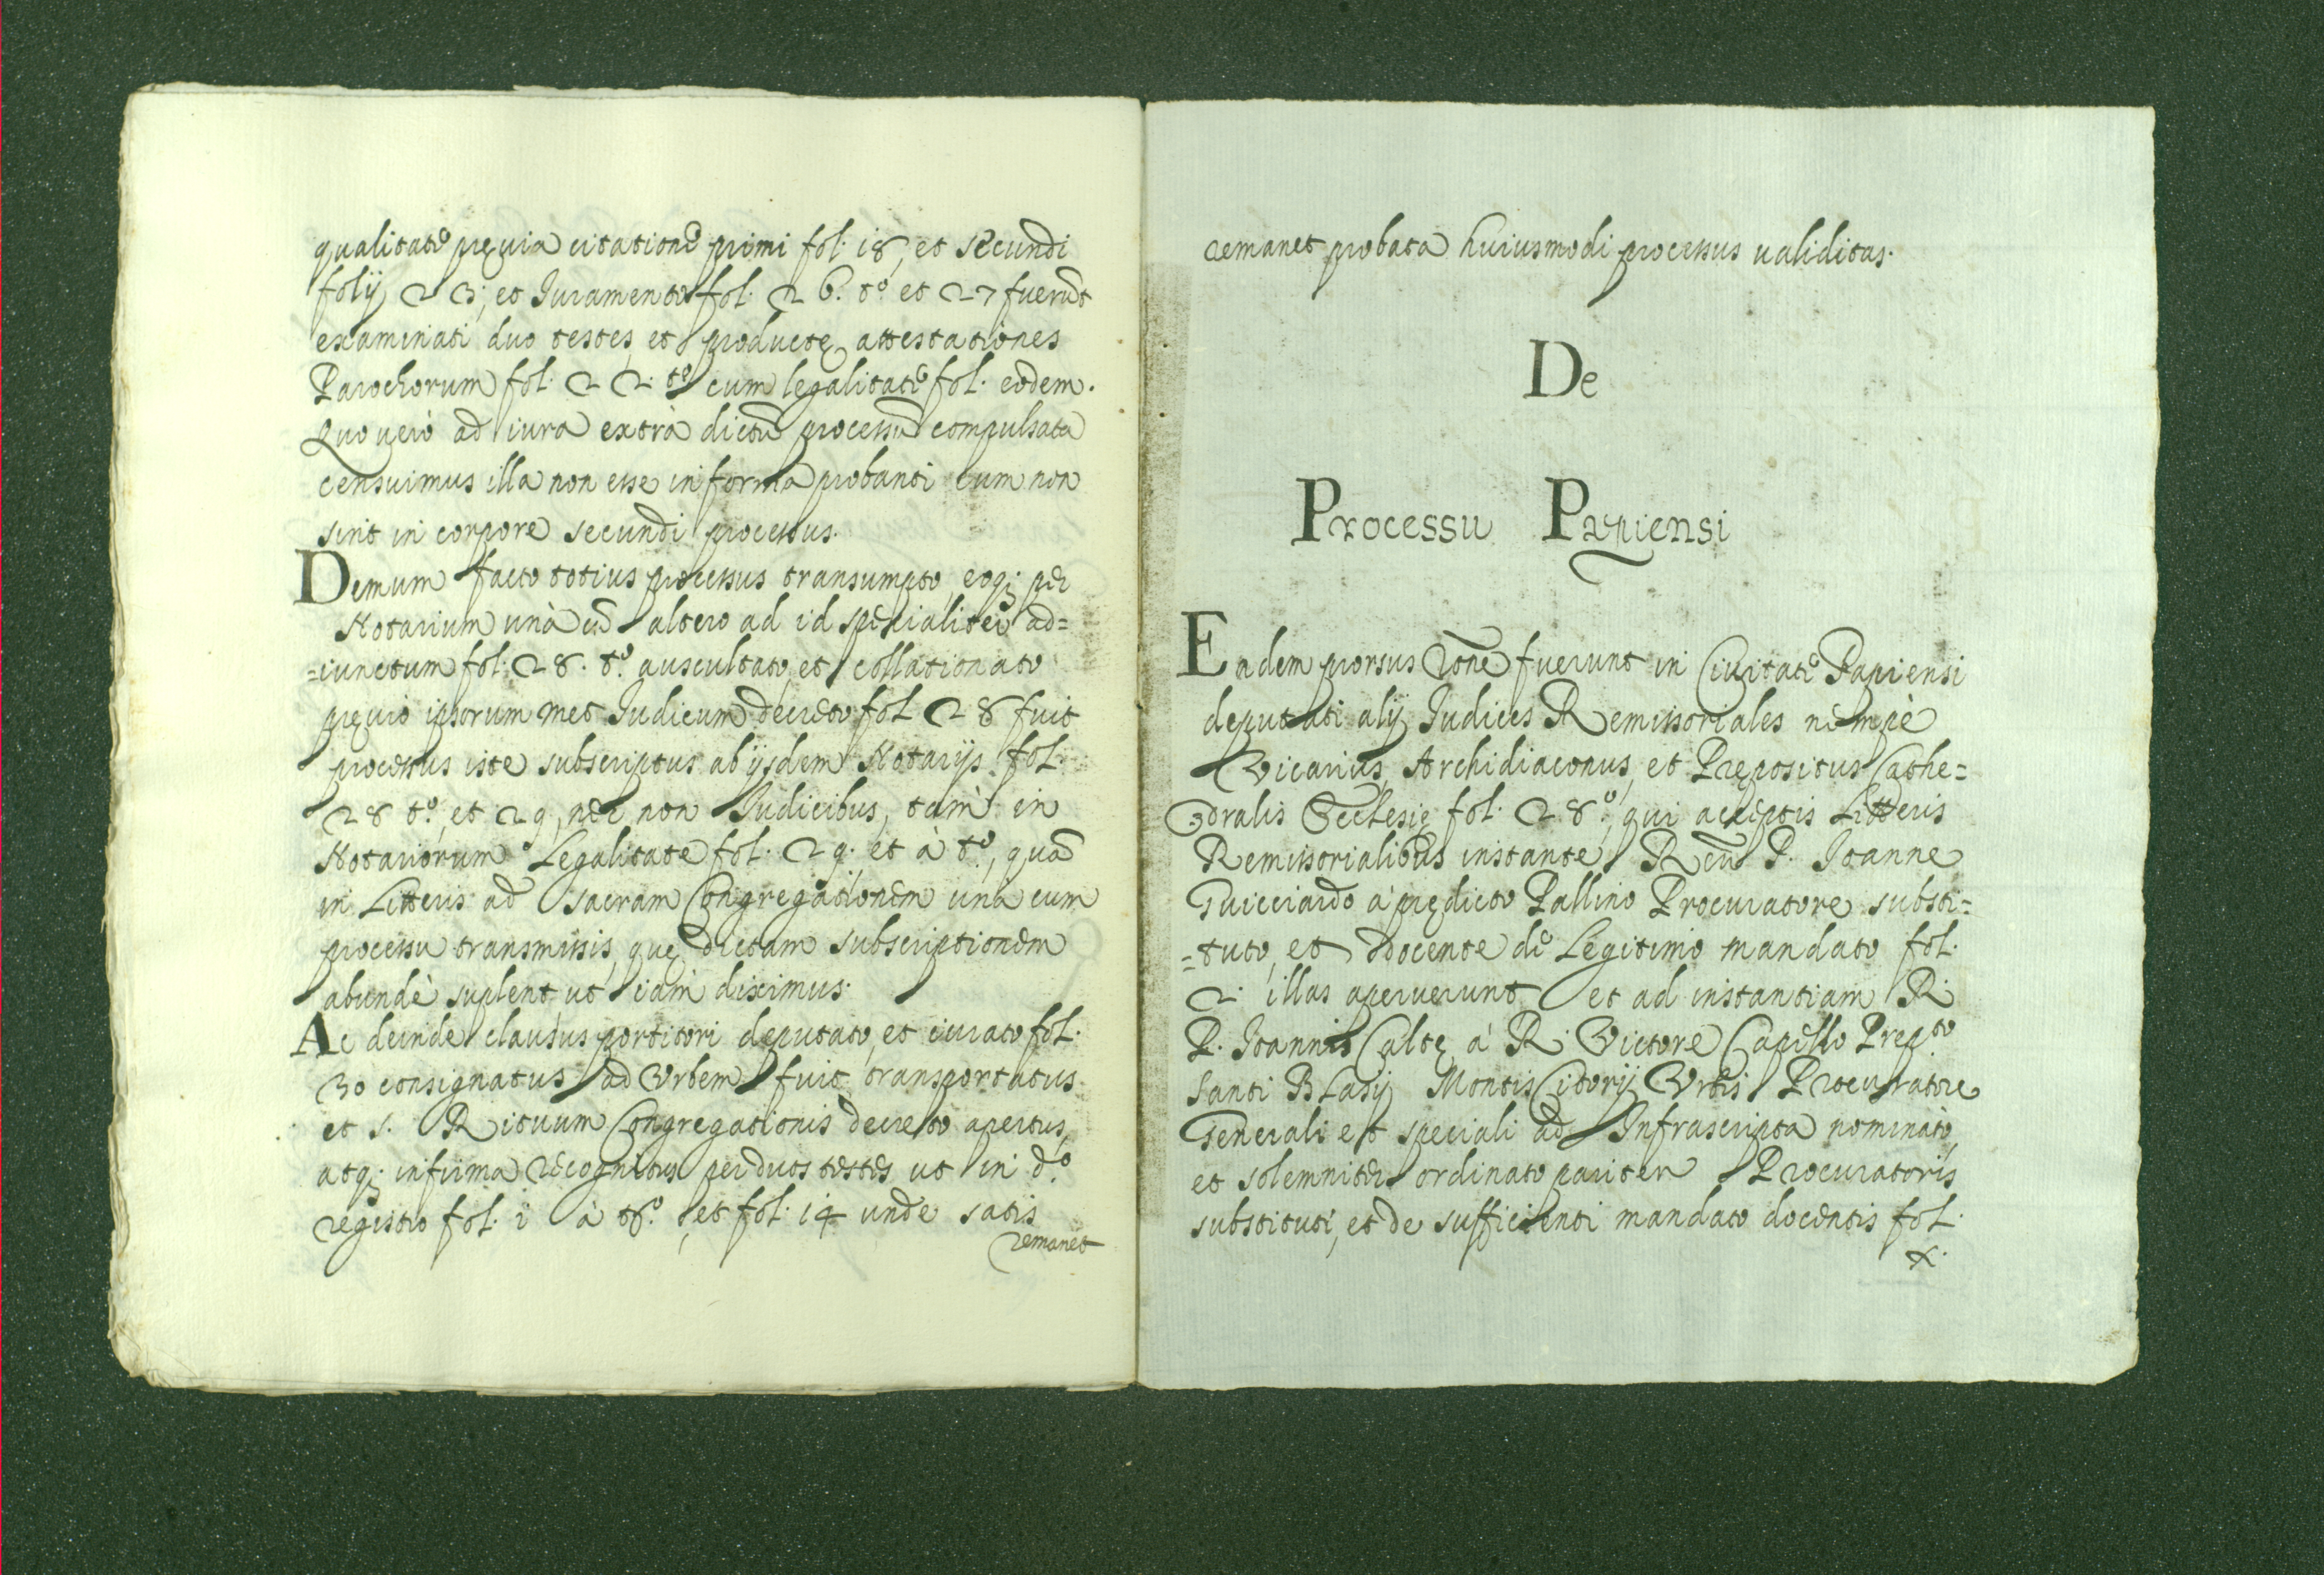 qualitate pręuia citatione primi fol. 18, et secundi
folij 23; et Iuramento fol. 26. t.º et 27 fuerũt
examinati duo testes, et productę attestationes
Parochorum fol. 22. t.º cum legalitate fol. eodem.
Quo uerò ad iura extrà dictũ processũ compulsata
censuimus illa non esse in forma probanti cum non
sint in corpore secundi processus.
Demum facto totius processus transumpto, eoq; per
Notarium unà cũ altero ad id specialiter ad=
=iunctum fol. 28. t.º auscultato, et collationato
pręuio ipsorum met Iudicum decreto fol 28 fuit
processus iste subscriptus ab ijsdem Notarijs fol.
28 t.º, et 29, nec non Iudicibus, tam in
Notariorum Legalitate fol. 29. et à t.º, quã
in Litteris ad sacram Congregationem unà cum
processu transmissis, quę dictam subscriptionem
abundè suplent ut iam diximus.
Ac deinde clausus portitori deputato, et iurato fol.
30 consignatus ad Vrbem fuit transportatus
et s. Rituum Congregationis decreto apertus,
atq; in firma recognitus per duos testes ut in d.º
registro fol. 1 à t.º, et fol. 14 unde satis
remanet
remanet probata huiusmodi processus validitas.
De
Processu Papiensi
Eadem prorsus rõne fuerunt in Ciuitate Papiensi
deputati alij Iudices Remissoriales nempè
Vicarius, Archidiaconus, et Prępositus Cathe=
dralis Ecclesię fol. 28.º, qui acceptis Litteris
Remissorialibus instante R P. Ioanne
Guicciardo à prędicto Pallino Procuratore substi=
=tuto, et docente de Legitimo mandato fol.
2. illas aperuerunt et ad instantiam R.
P. Ioannis Caltę à R. Victore Capello Prep.to
Santi Blasij Montis Citorij Vrbis Procuratore
Generali et speciali ad Infrascripta nominato,
et solemniter ordinato pariter Procuratoris
substituti, et de sufficienti mandato docentis fol.
x.